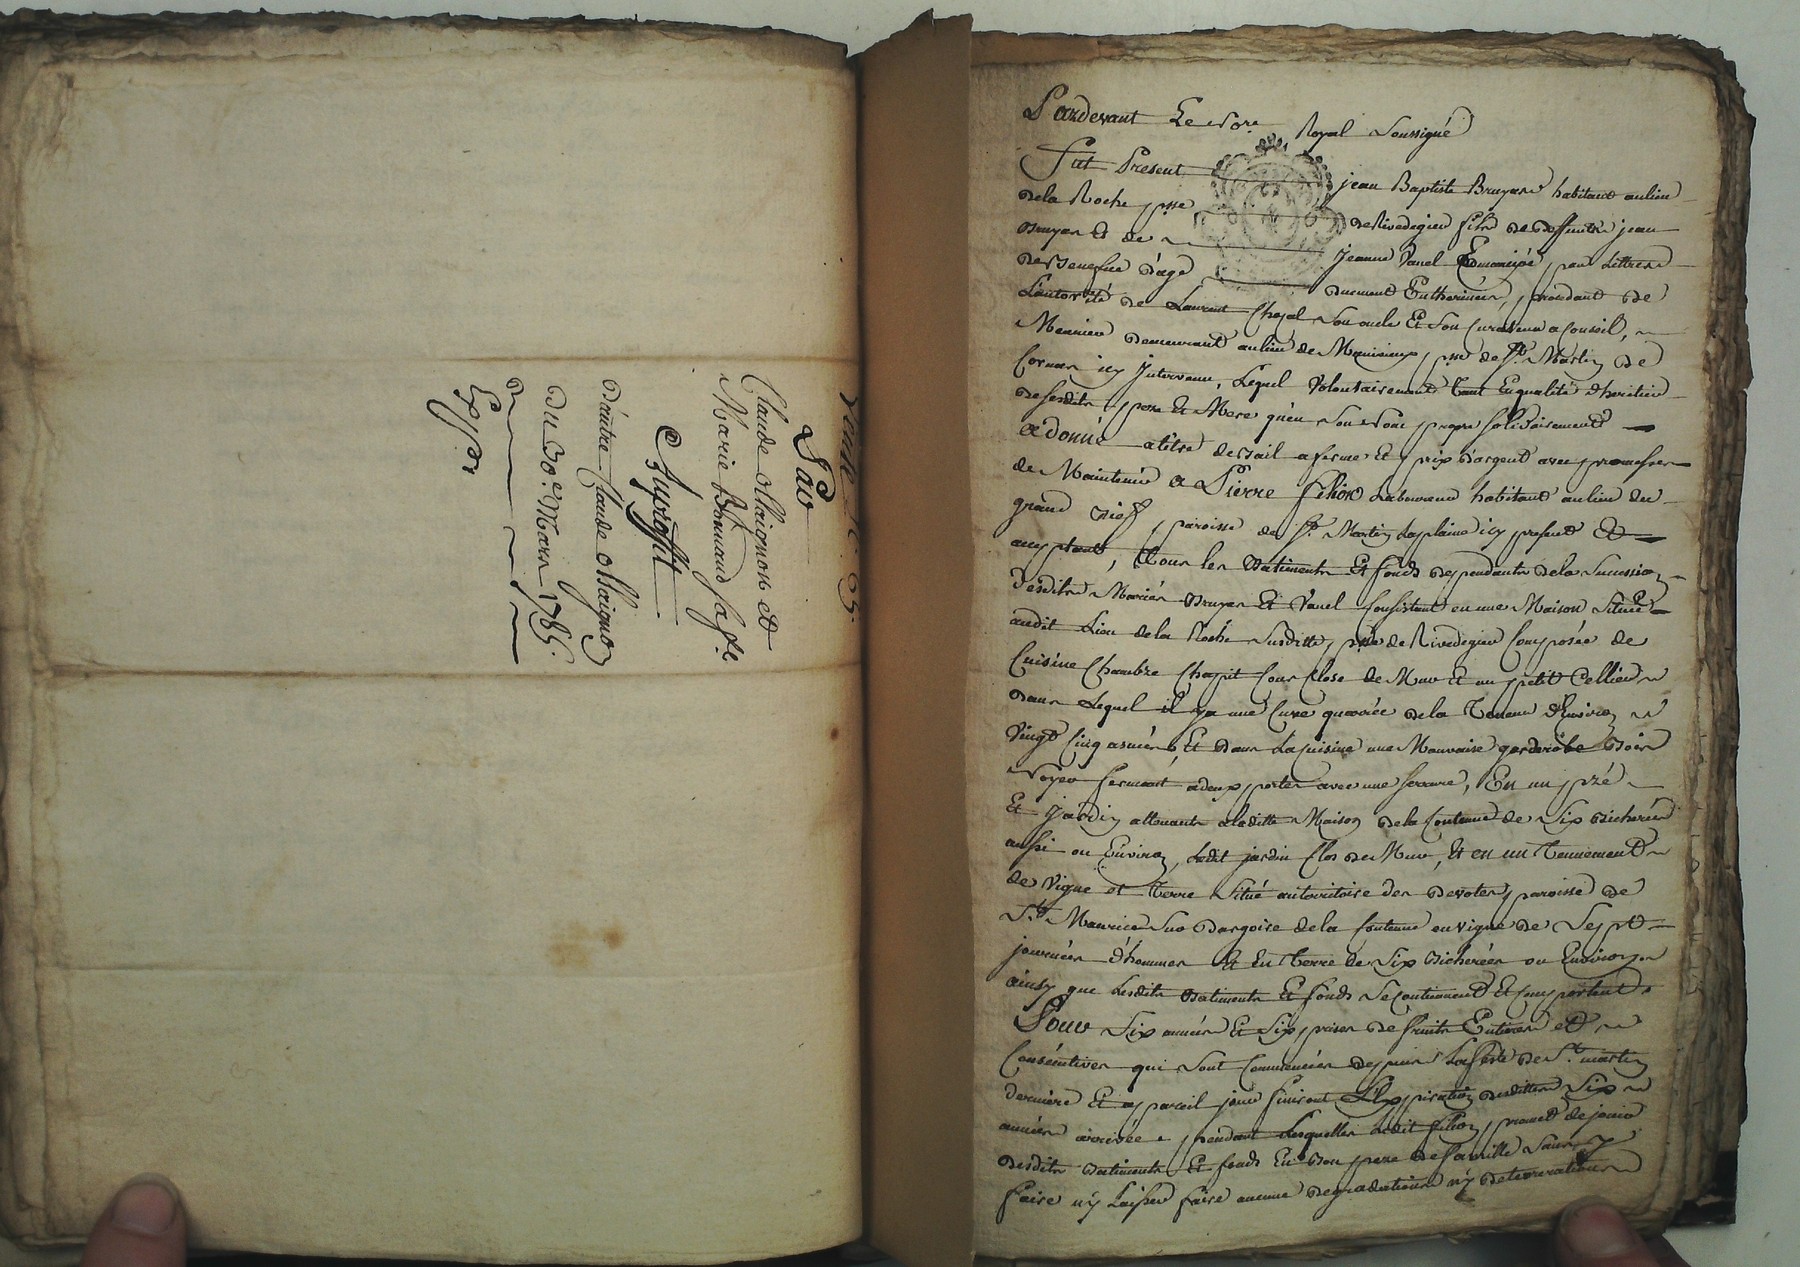 Vente
Par
Claude Maignon et
Marie Bonnand sa fe.
au profit
D'autre Claude Maignon
Du 30e. Mars 1785.
Expon.
Pardevant Le Nore. Royal Soussigné
Fut Present jean Baptiste Bruyas habitant au lieu
de la Roche psse de Rivedegier fils de deffunts jean
Bruyas Et de jeanne Vanel Emancipé, par Lettres
de Benefice d'age duement Entherinées, procédant de
L'autorité de Laurent Chazal son oncle Et son Curateur a Conseil,
Meunier demeurant au lieu de psse de St. Martin de
Cornas icy Intervenu, Lequel volontairement tant En qualité d'heritier
de sesdits pere Et Mere qu'en son nom propre solidairement
a donné a titre de Bail a ferme Et prix d'argent avec promesse
de Maintenir a Pierre filion Laboureur habitant au lieu du
grand paroisse de St. Martin Laplaine icy present Et
acceptant, Tous les Batiments Et fonds dependants de la Succession
desdits Mariés Bruyas Et Vanel Consistant en une Maison Située
audit Lieu de la Roche Susditte psse de Rivedegier Composée de
Cuisine Chambre Chapit Cour Close de Mur Et un petit Cellier
dans Lequel il y a une Cuve quarrée de la Teneur d'Environ
vingt Cinq asnées, Et dans La Cuisine une Mauvaise garderobe Bois
Noyer fermant a deux portes avec une serrure, En un pré
Et jardin attenants a laditte Maison de la Contenue de Six Bicherées
aussi ou Environ, Ledit jardin Clos de Mur, Et en un Tennement
de vigne et Terre Situé au territoire des devotes, paroisse de
St. Maurice Sur Dargoire de la Contenue en vigne de Sept
journées d'hommes Et En Terre de Six Bicherées ou Environ
ainsy que Lesdits Batiments Et fonds Se Contiennent Et Comportent.
Pour Six années Et Six prises de fruits Entieres et
Consécutives qui Sont Commencées depuis La feste de St. martin
derniere Et a pareil jour finiront L'Expiration desdittes Six
années arrivée, pendant Lesquelles Ledit filion, promet de jouir
desdits Batiments Et fonds En Bon pere de famille Sans y
faire n'y Laisser faire aucune degradations n'y deteriorations